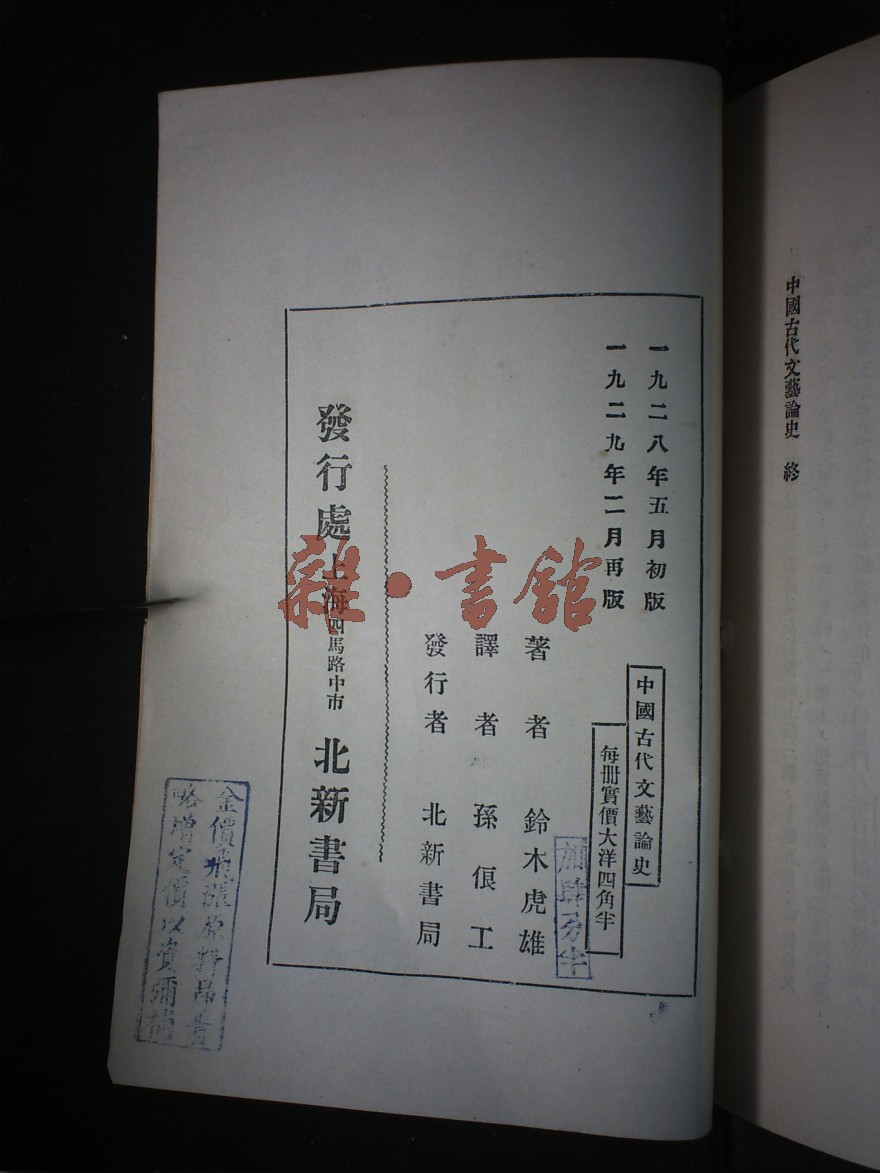 中國古代文藝論史 終
一九二八年五月初版
一九二九年二月再版
中國古代文藝論史
每冊實價大洋四角半
加肆分半
著者 鈴木虎雄
譯者 孫俍工
發行者 北新書局
發行處 上海四馬路中市 北新書局
金價飛漲原料昂貴
略增定價以資彌補
雜·書館